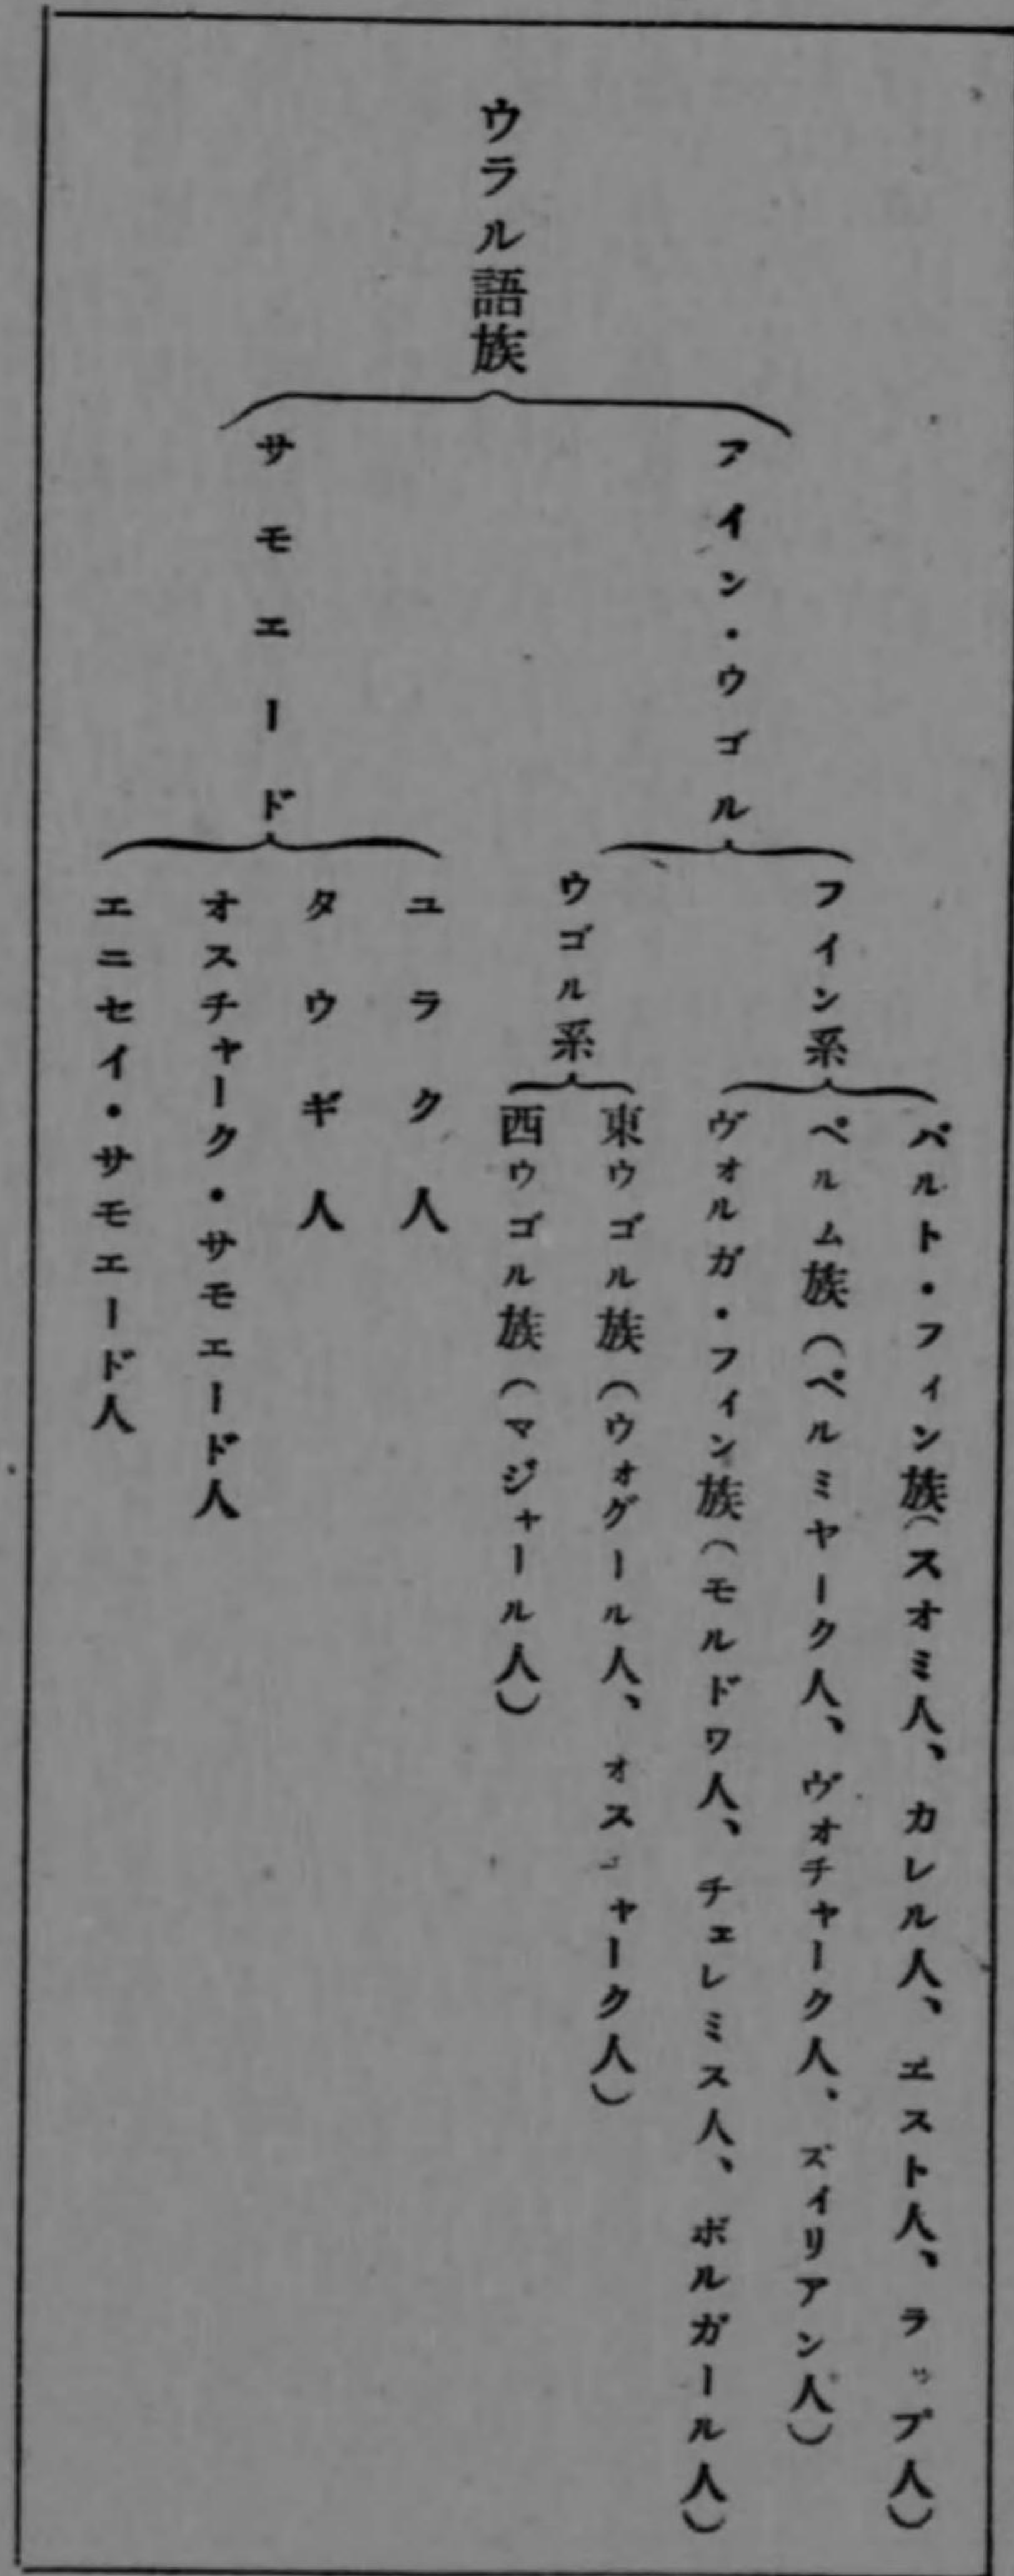 ウラル語族
アイン・ウゴル
フイン系
バルト・フィン族(スオミ人、カレル人、エスト人、ラップ人)
ペルム族(ペルミヤーク人、ヴオチャーク人、ズイリアン人)
ヴォルガ・フイン族(モルドワ人、チェレミス人、ボルガール人)
ウゴル系
東ウゴル族(ウォグール人、オスチャーク人)
西ウゴル族(マジャール人)
サモエード
ユラク人
タウギ人
オスチャーク・サモエード人
エニセイ・サモエード人